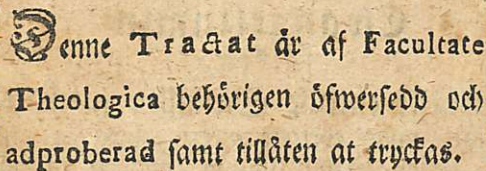 Denne Tractat är af Facultate
Theologica behörigen öfwersedd och
adproberad samt tillåten at tryckas.